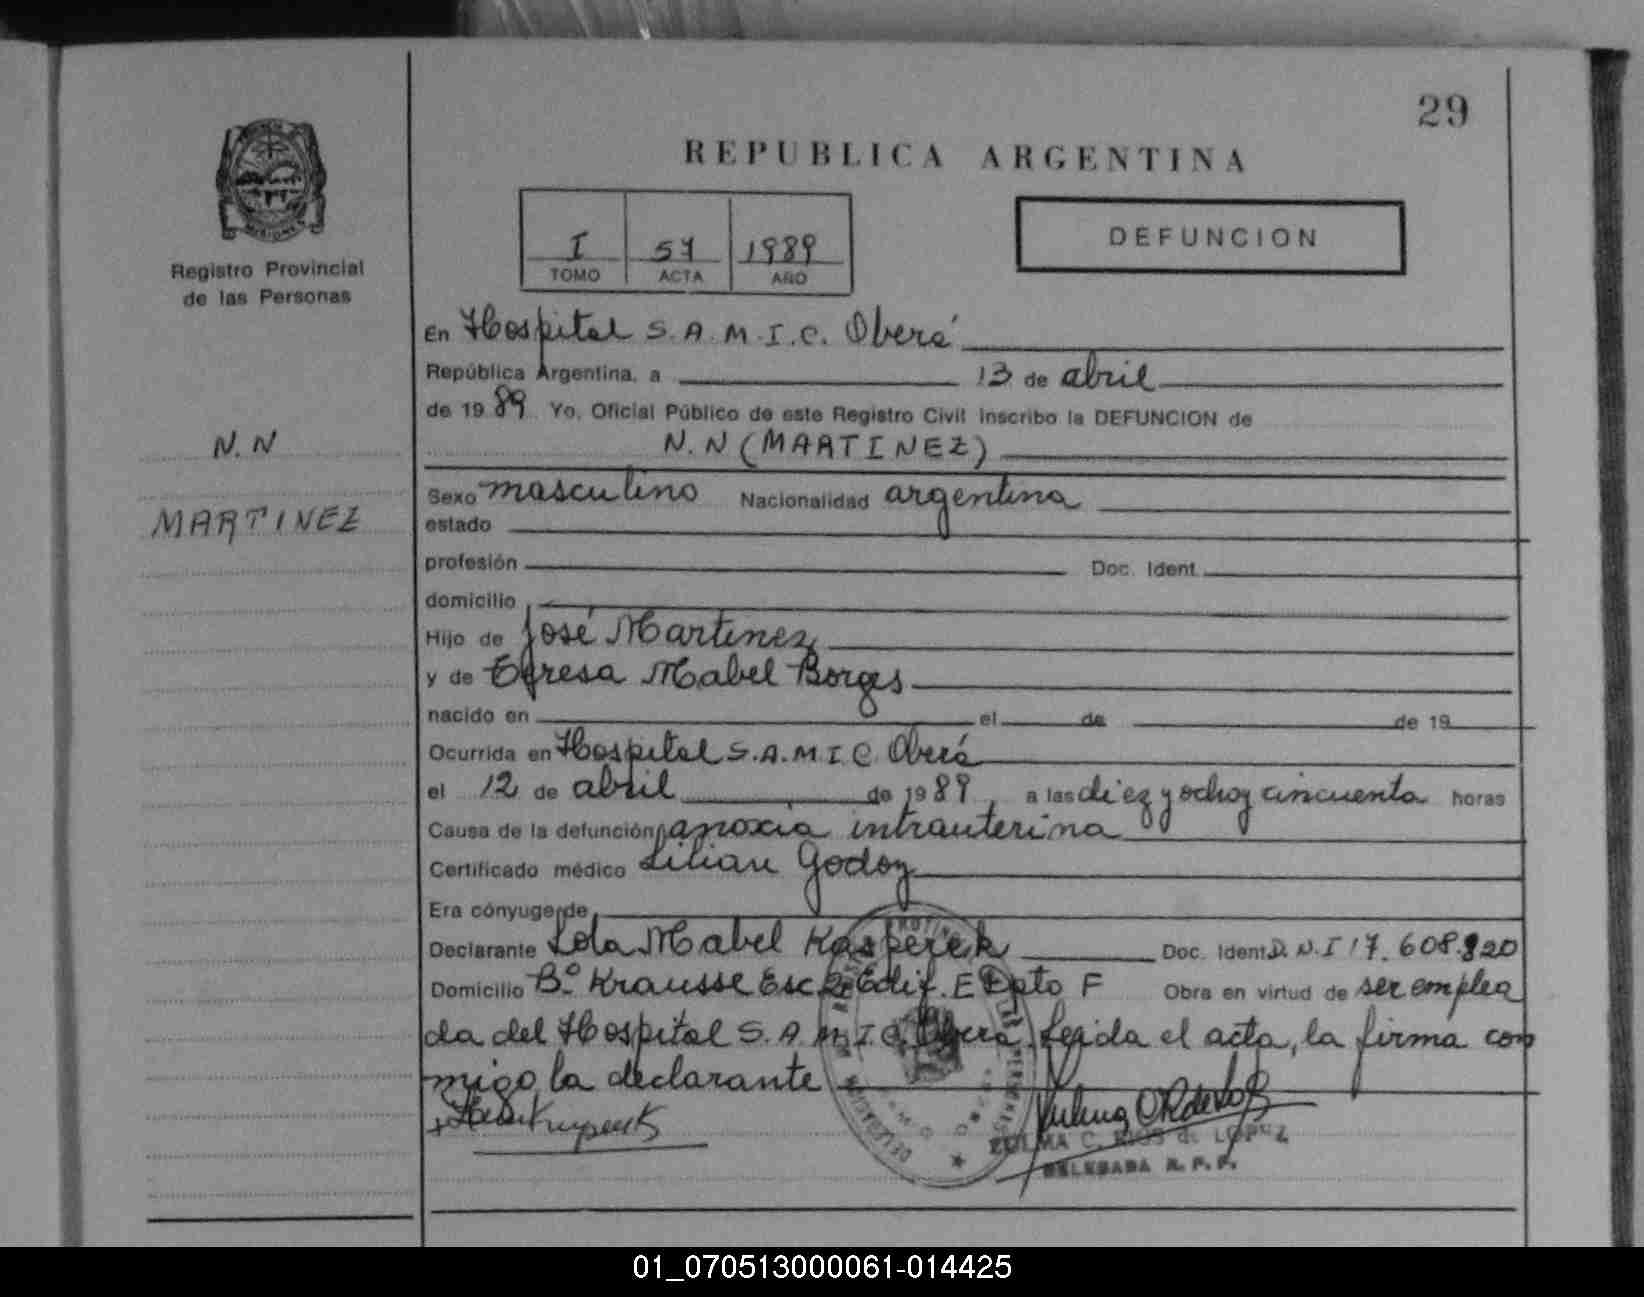 29
REPUBLICA ARGENTINA
MISIONES
Registro Provincial
de las Personas
I 57 1989
TOMO ACTA AÑO
DEFUNCION
En Hospital S.A.M.I.C. Oberá
República Argentina, a 13 de abril
de 1989 Yo, Oficial Público de este Registro Civil inscribo la DEFUNCION de
N.N (MARTINEZ)
N.N
MARTINEZ
Sexo masculino Nacionalidad argentina
estado
profesión Doc. Ident.
domicilio
Hijo de José Martinez
y de Teresa Mabel Borges
nacido en el de de 19
Ocurrida en Hospital S.A.M.I.C. Oberá
el 12 de abril de 1989, a las diez y ocho y cincuenta horas
Causa de la defunción anoxia intrauterina
Certificado médico Lilian Godoy
Era cónyuge de
Declarante Lola Mabel Kasperek Doc. Ident. D.N.I 17.608.820
Domicilio Bº Krausse Esc 2 Edif. E Dpto F Obra en virtud de ser emplea
da del Hospital S.A.M.I.C. Oberá. Leida el acta, la firma con
migo la declarante
ZULMA C. RIOS d. LOPEZ
DELEGADA R. P. P.
01_070513000061-014425